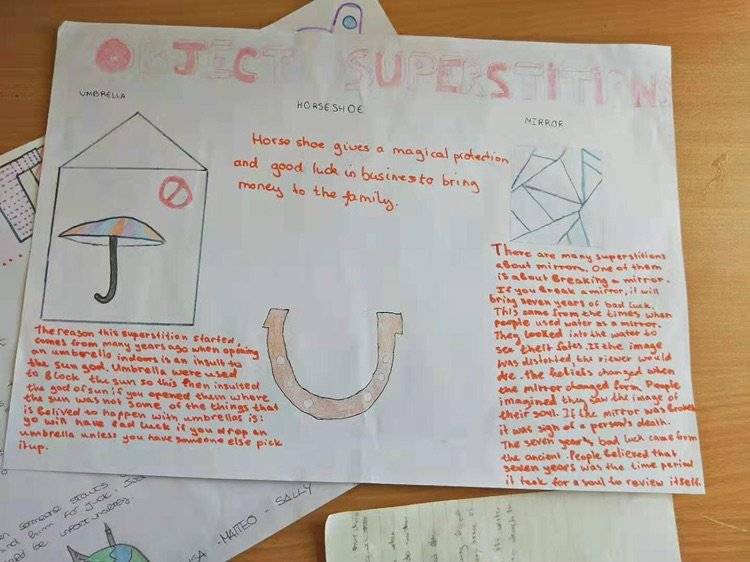 OBJECT SUPERSTITIONS
UMBRELLA
HORSESHOE
MIRROR
Horse shoe gives a magical protection
and good luck in business to bring
money to the family.
The reason this superstition started,
comes from many years ago when opening
an umbrella indoors is an insult to
the sun god. Umbrella were used
to block the sun so this then insulsed
the god of sun if you opened them where
the sun was not some of the things that
is belived to happen with umbrellas is:
yo will have bad luck if you drop an
umbrella unless you have someone else pick
it up.
There are many superstitions
about mirrors. One of them
is about Breaking a mirror.
If you break a mirror, it will
bring seven years of bad luck.
This came from the times when
people used water as a mirror.
They looked into the water to
see their fates. If the image
was distorted the viewer would
die. The beliefs changed when
the mirror changed form. People
imagined they saw the image of
their soul. If the mirror was broken
it was sign of a person's death.
The seven years bad luck came from
the ancient. People believed that
seven years was the time period
it took for a soul to review itself.
someone
him for luck
be
- MATTEO - SALLY